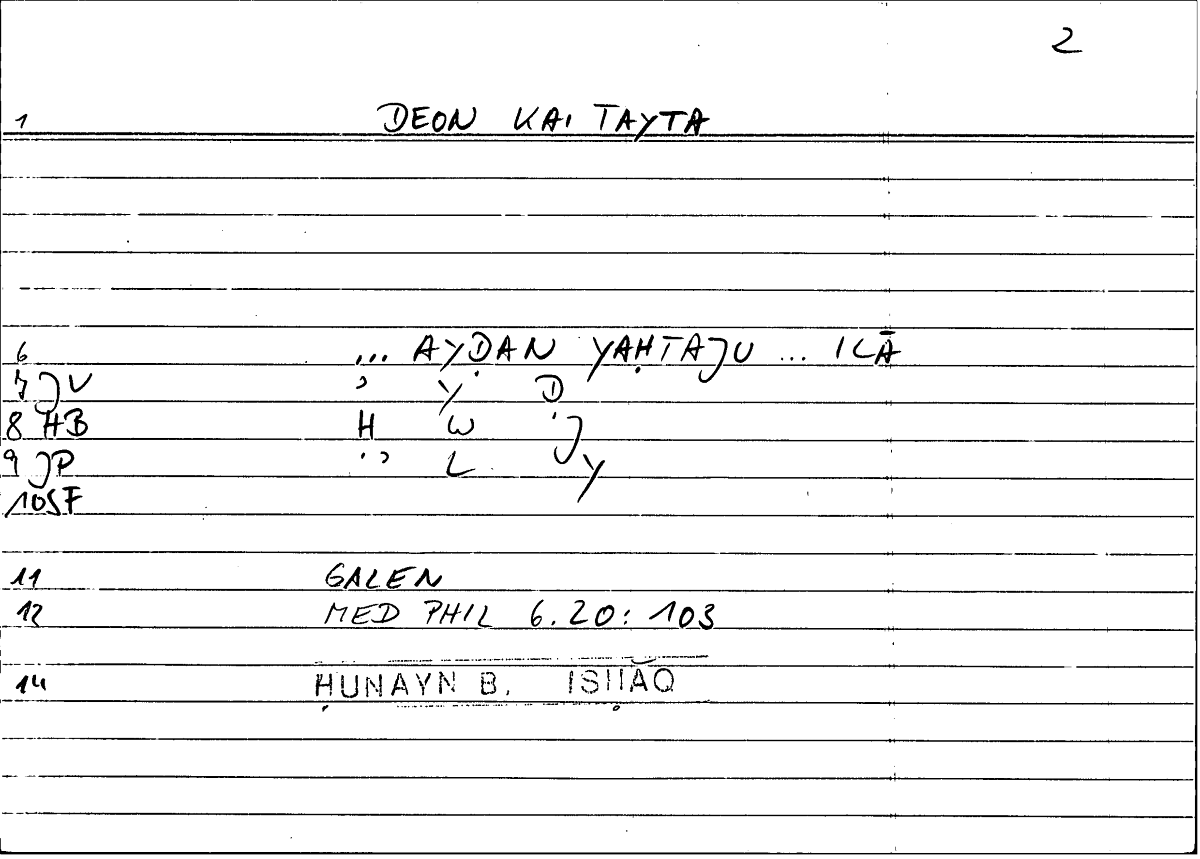 2
1 DEON KAI TAYTA
6 ... AYḌAN YAḤTAJU ... ILĀ
7 JV ʾ Y Ḍ
8 HB Ḥ W J
9 JP ʾ L Y
10 SF
11 GALEN
12 MED PHIL 6.20: 103
14 ḤUNAYN B. ISḤĀQ